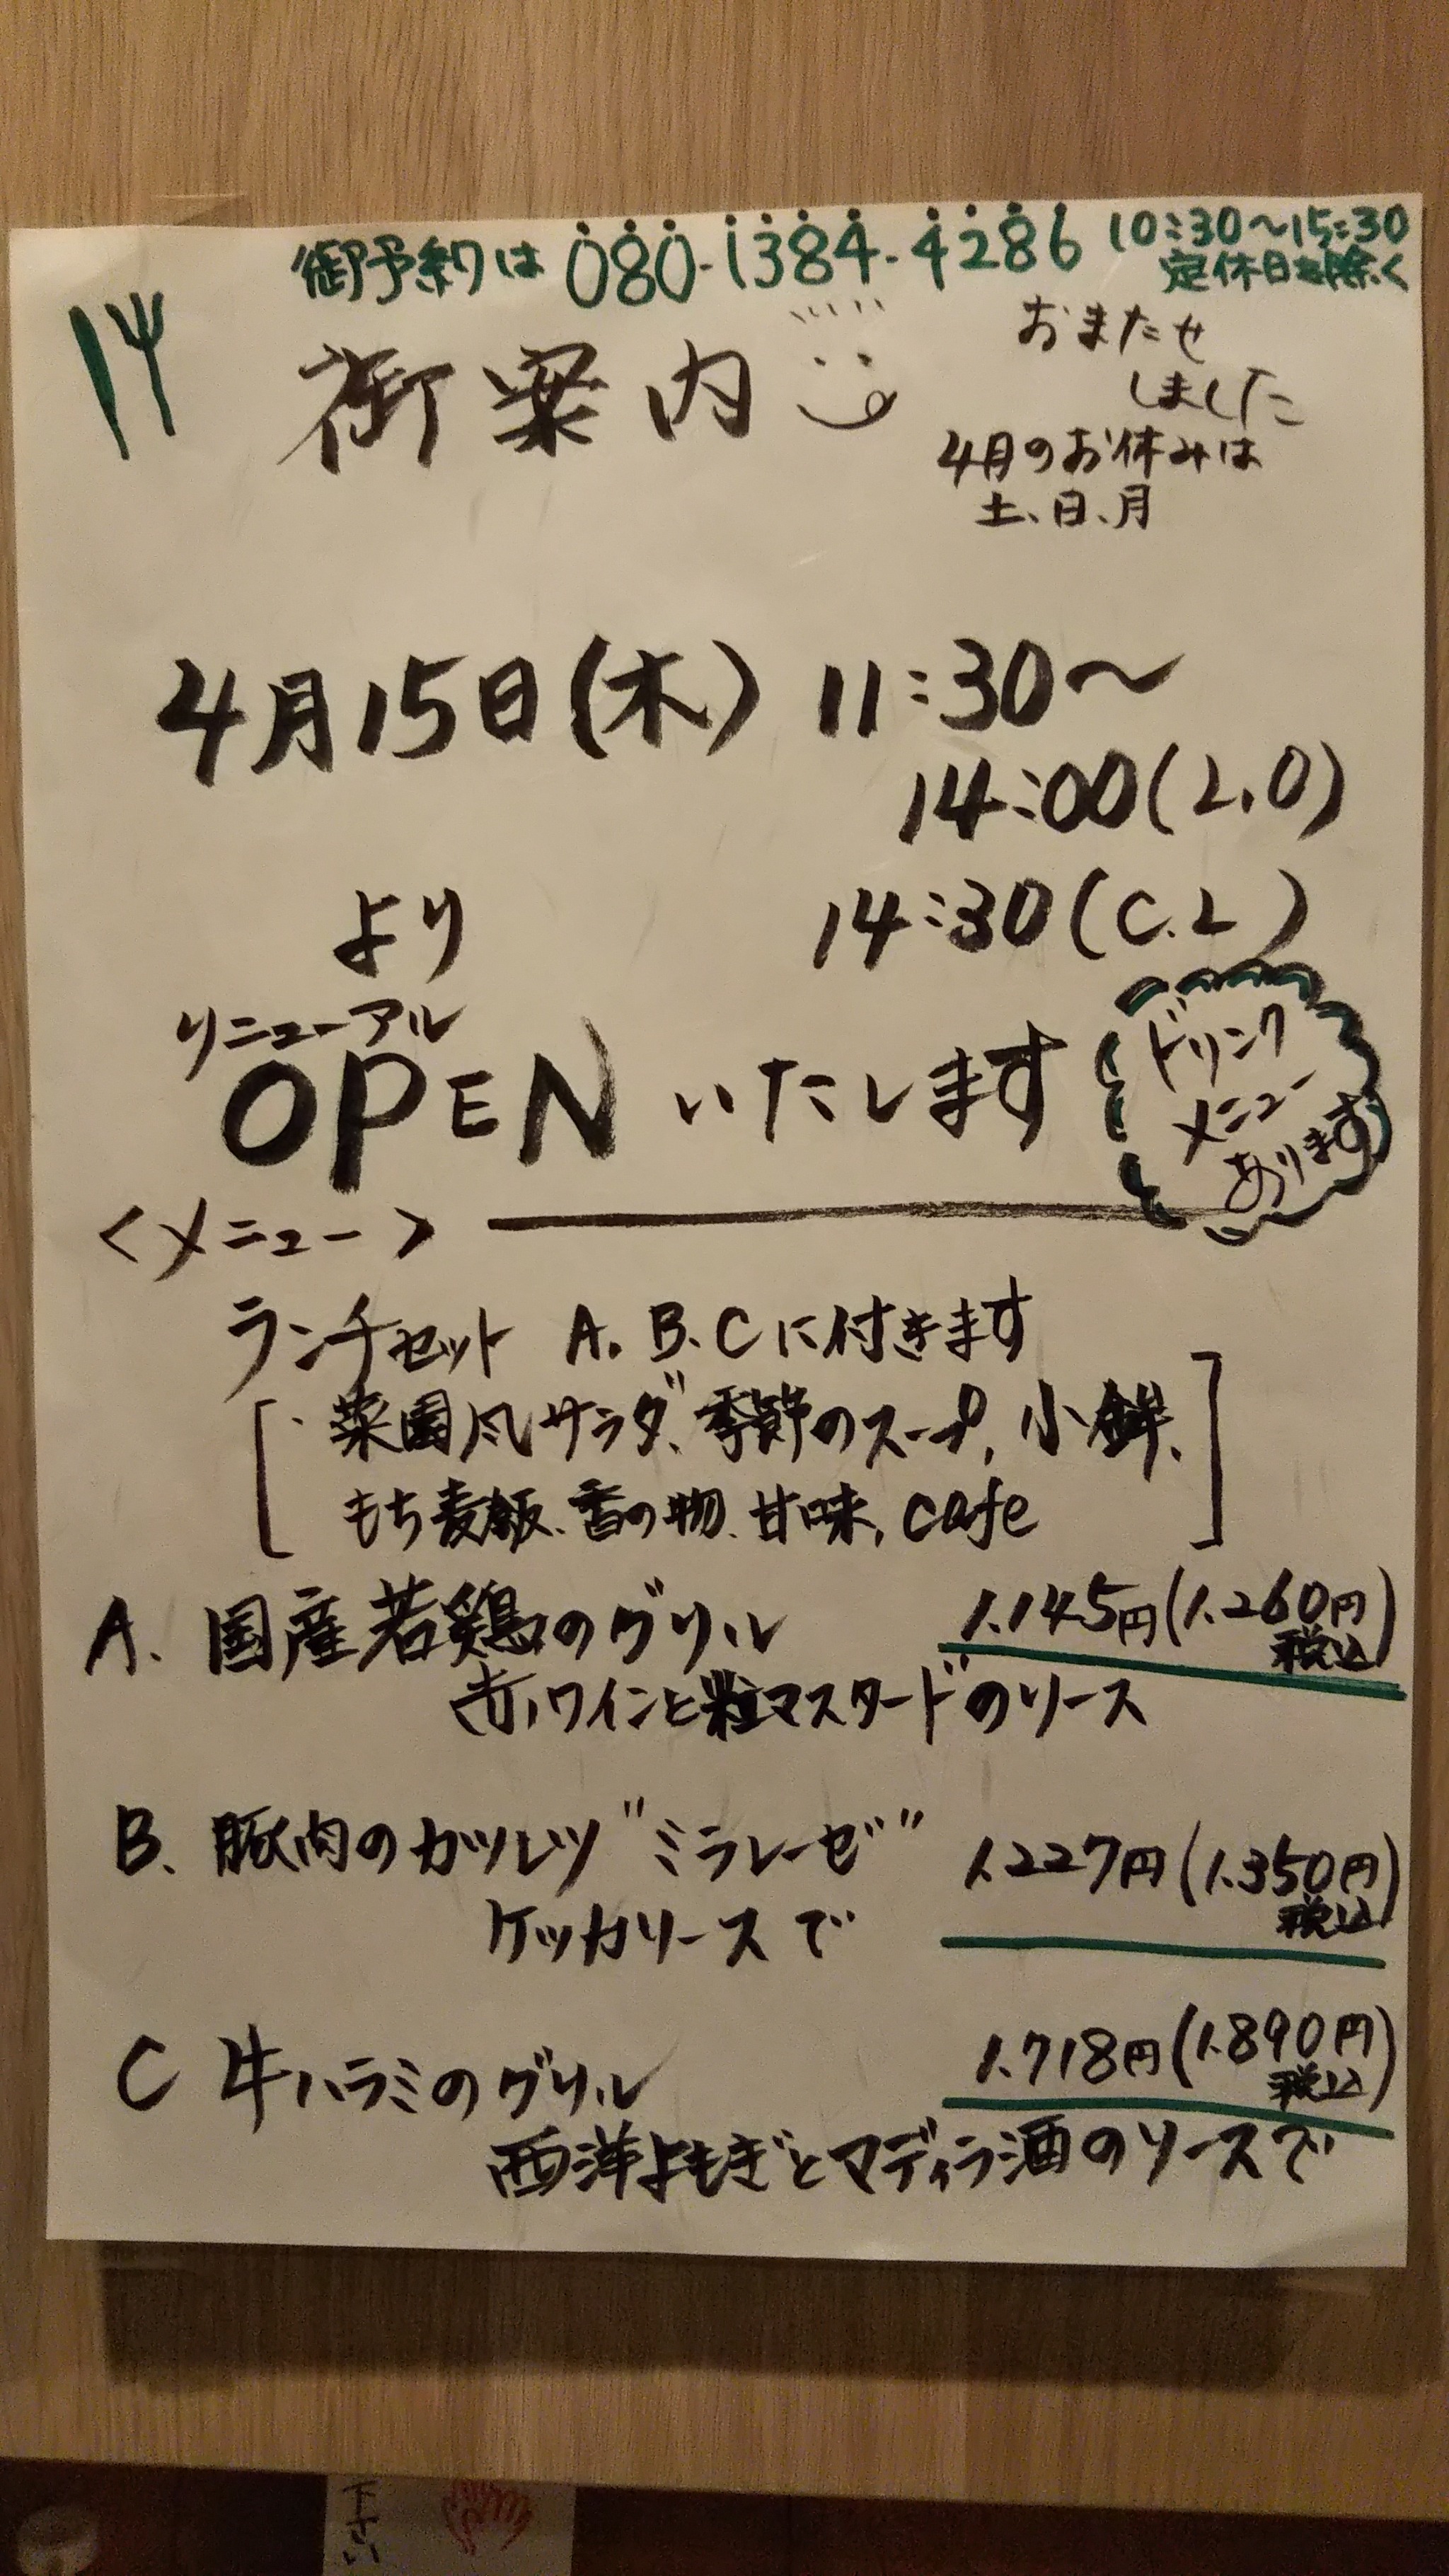 御予約は 080-1384-4286 10:30〜15:30
定休日を除く
御案内
おまたせ
しました
4月のお休みは
土、日、月
4月15日(木) 11:30〜
14:00(L.O)
より
14:30(C.L)
リニューアル
OPEN いたします
ドリンク
メニュー
あります
<メニュー>
ランチセット A.B.Cに付きます
・菜園風サラダ、季節のスープ、小鉢、
もち麦飯、香の物、甘味、cafe
A. 国産若鶏のグリル 1.145円(1.260円税込)
赤ワインと粒マスタードのソース
B. 豚肉のカツレツ"ミラレーゼ" 1.227円(1.350円税込)
ケッカソースで
C 牛ハラミのグリル 1.718円(1.890円税込)
西洋よもぎとマディラ酒のソースで
下さい